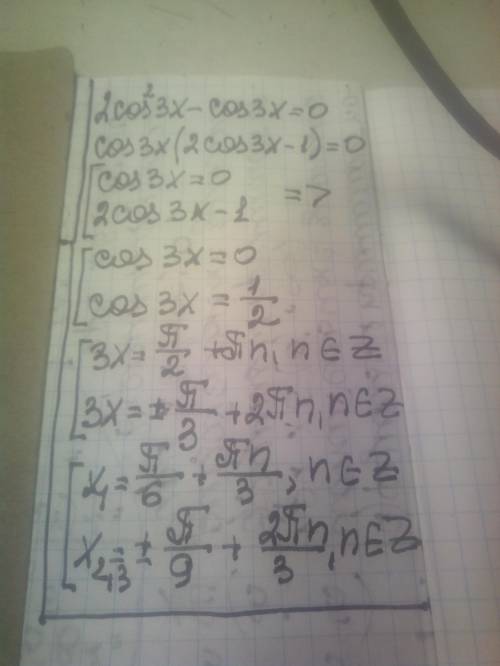 2cos²3x - cos3x = 0
cos3x(2cos3x - 1) = 0
[cos3x = 0
2cos3x - 1 =>
[cos3x = 0
cos3x = 1/2
[3x = π/2 + πn, n ∈ Z
3x = ± π/3 + 2πn, n ∈ Z
[x₁ = π/6 + πn/3, n ∈ Z
x₂,₃ = ± π/9 + 2πn/3, n ∈ Z